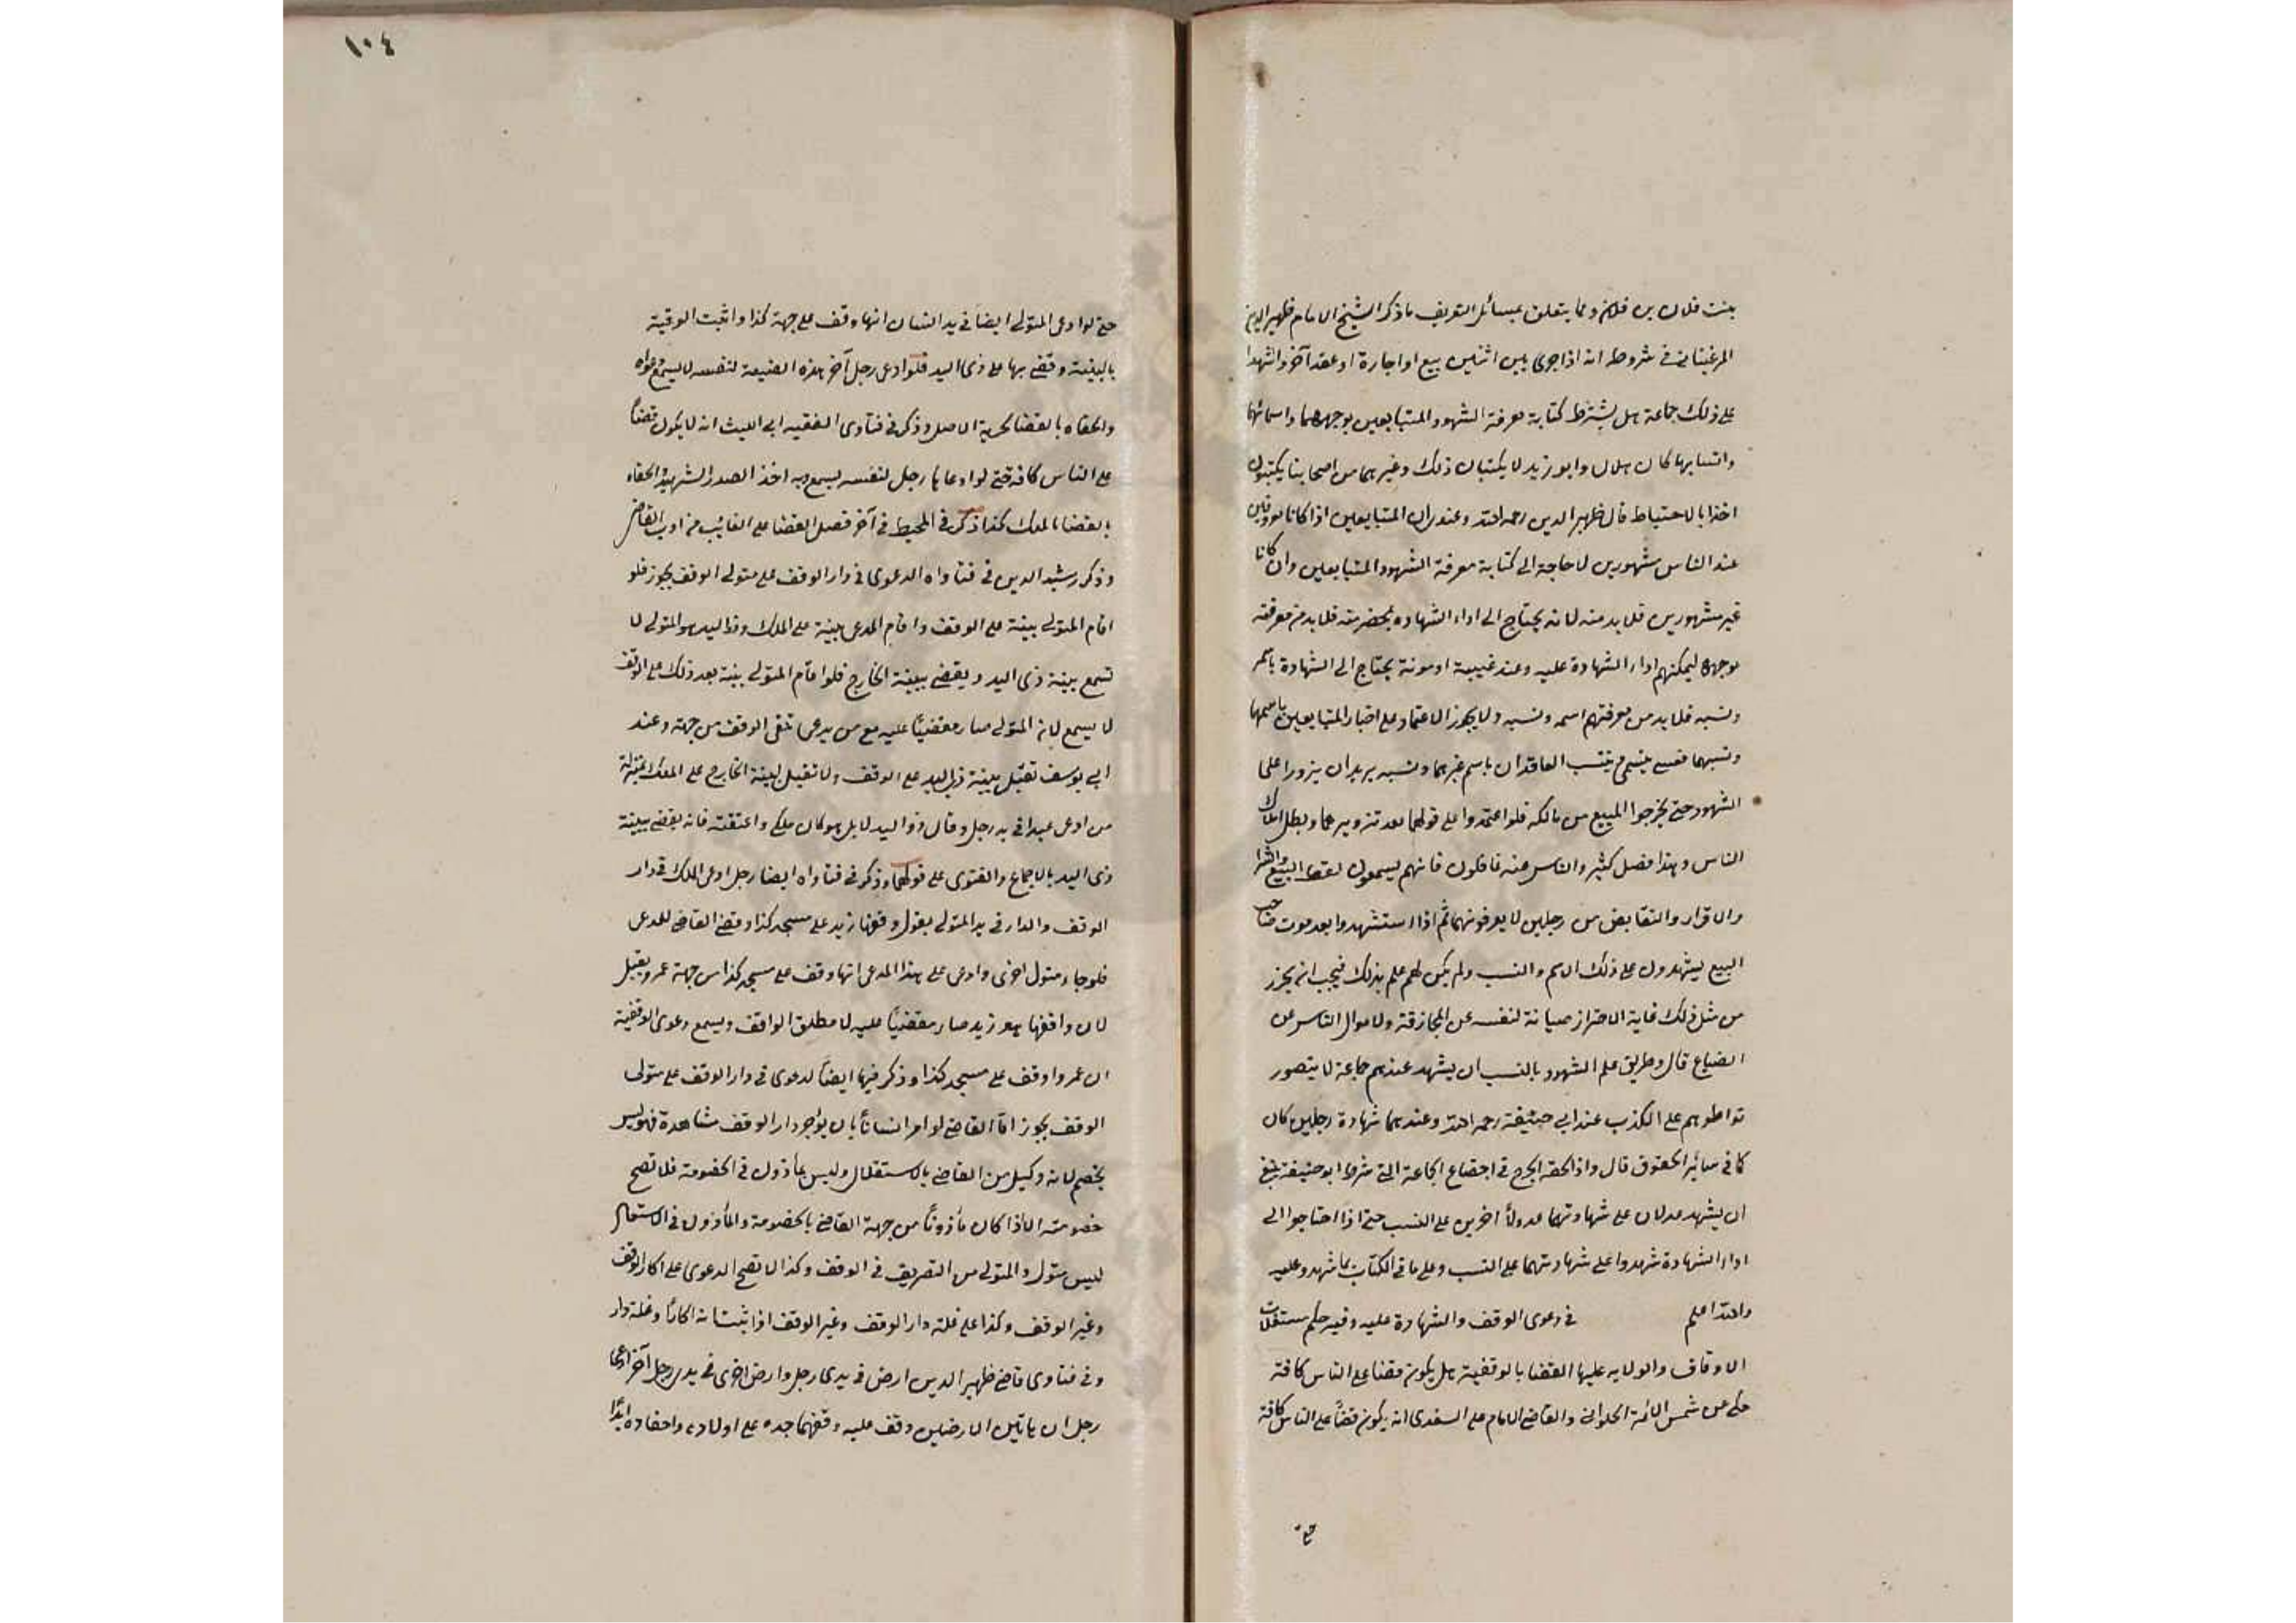 بنت فلان بن فلان ومما يتعلق بمسائل التعريف ما ذكر الشيخ الامام ظهير الدين
المرغينانى فى شروطه انه اذا جرى بين اثنين بيع او اجارة او عقد آخر واشهدا
على ذلك جماعة هل يشترط كتابة معرفة الشهود المتبايعين بوجههما واسمائهما
وانسابهما كان هلال وابو زيد لا يكتبان ذلك وغيرهما من اصحابنا يكتبون
اخذا بالاحتياط قال ظهير الدين رحمه الله وعندى ان المتبايعين اذا كانا معروفين
عند الناس مشهورين لا حاجة الى كتابة معرفة الشهود المتبايعين وان كانا
غير مشهورين فلا بد منه لانه يحتاج الى اداء الشهادة بحضرمته فلا بد من معرفته
بوجهه ليمكنهم اداء الشهادة عليه وعند غيبته او موته يحتاج الى الشهادة باسمه
ونسبه فلا بد من معرفتهم اسمه ونسبه ولا يجوز الاعتماد على اخبار المتبايعين باسمهما
ونسبهما فعسى يتسمى وينتسب العاقدان باسم غيرهما ونسبه يريدان يزورا على
الشهود حتى يخرجوا المبيع من مالكه فلو اعتمدوا على قولهما نفد تزويرهما وبطل املاك
الناس وهذا فصل كثير والناس عنه غافلون فانهم يسمعون لفظ البيع والشرا
والاقرار والتقابض من رجلين لا يعرفونهما ثم اذا استشهدوا بعد موت صاحب
البيع يشهدون على ذلك الاسم والنسب ولم يكن لهم علم بذلك فيجب ان يحرز
من مثل ذلك غاية الاحتراز صيانة لنفسه عن المجازفة ولاموال الناس عن
الضياع قال وطريق علم الشهود بالنسب ان يشهد عندهم جماعة لا يتصور
تواطوهم على الكذب عند ابى حنيفة رحمه الله وعندهما شهادة رجلين كان
كما فى سائر الحقوق قال واذا لحقه الحرج فى اجتماع الجماعة التى شرط ابو حنيفة ينبغى
ان يشهد عدلان على شهادتهما عدولا اخرين على النسب حتى اذا احتاجوا الى
اداء الشهادة شهدوا على شهادتهما على النسب وعلى ما فى الكتاب بما شهدو عليه
والله اعلم فى دعوى الوقف والشهادة عليه وفيه حكم مستغلات
الاوقاف والولايه عليها القضا بالوقفية هل يكون قضا على الناس كافة
حكى عن شمس الائمة الحلوانى والقاضى الامام على السغدى انه يكون قضا على الناس كافة
حتى
١٠٤
حتى لو ادعى المتولى ايضا فى يد انسان انها وقف على جهة كذا واثبت الوقفية
بالبينة وقضى بها على ذى اليد فلو ادعى رجل آخر هذه الضيعة لنفسه لا يسمع دعواه
والحقاه بالقضا بحرية الاصل وذكر فى فتاوى الفقيه ابى الليث انه لا يكون قضاً
على الناس كافة حتى لو ادعاها رجل لنفسه يسمع وبه اخذ الصدر الشهيد والحقاه
بالقضا بالملك كذا ذكر فى المحيط فى آخر فصل القضا على الغائب من ادب القاضى
وذكر رشيد الدين فى فتاواه الدعوى فى دار الوقف على متولى الوقف يجوز فلو
اقام المتولى بينة على الوقف واقام المدعى بينة على الملك وذو اليد هو المتولى لا
تسمع بينة ذى اليد ويقضى ببينة الخارج فلو اقام المتولى بينة بعد ذلك على الوقف
لا يسمع لان المتولى صار مقضيًا عليه مع من يدعى تلقى الوقف من جهته وعند
ابى يوسف تقبل بينة ذى اليد على الوقف ولا تقبل بينة الخارج على الملك بمنزلة
من ادعى عبدا فى يد رجل وقال ذو اليد لا بل هو كان ملكى واعتقته فانه يقضى ببينة
ذى اليد بالاجماع والفتوى على قولهما وذكر فى فتاواه ايضا رجل ادعى الملك فى دار
الوقف والدار فى يد المتولى يقول وقفها زيد على مسجد كذا وقضى القاضى للمدعى
فلو جاء متول اخرى وادعى على هذا المدعى انها وقف على مسجد كذا من جهة عمرو يقبل
لان واقفها هو زيد صار مقضيًا عليه لا مطلق الواقف ويسمع دعوى الوقفية
ان عمروا وقف على مسجد كذا وذكر فيها ايضاً الدعوى فى دار الوقف على متولى
الوقف يجوز اما القاضى لو امر انسانًا بان يؤاجر دار الوقف مشاهدة فهو ليس
بخصم لانه وكيل من القاضى بالاستغلال وليس بمأذون فى الخصومة فلا تصح
خصومته الا اذا كان مأذونًا من جهة القاضى بالخصومة والمأذون فى الاستغلال
ليس متول والمتولى من التصريف فى الوقف وكذا لا تصح الدعوى على اكار الوقف
وغير الوقف وكذا على غلة دار الوقف وغير الوقف اذا ثبت انه اكارًا وغلة دار
وفى فتاوى قاضى ظهير الدين ارض فى يدى رجل وارض اخرى فى يدى رجل آخر ادعى
رجل ان هاتين الارضين وقف عليه وقفهما جده على اولاده واحفاده ابدًا